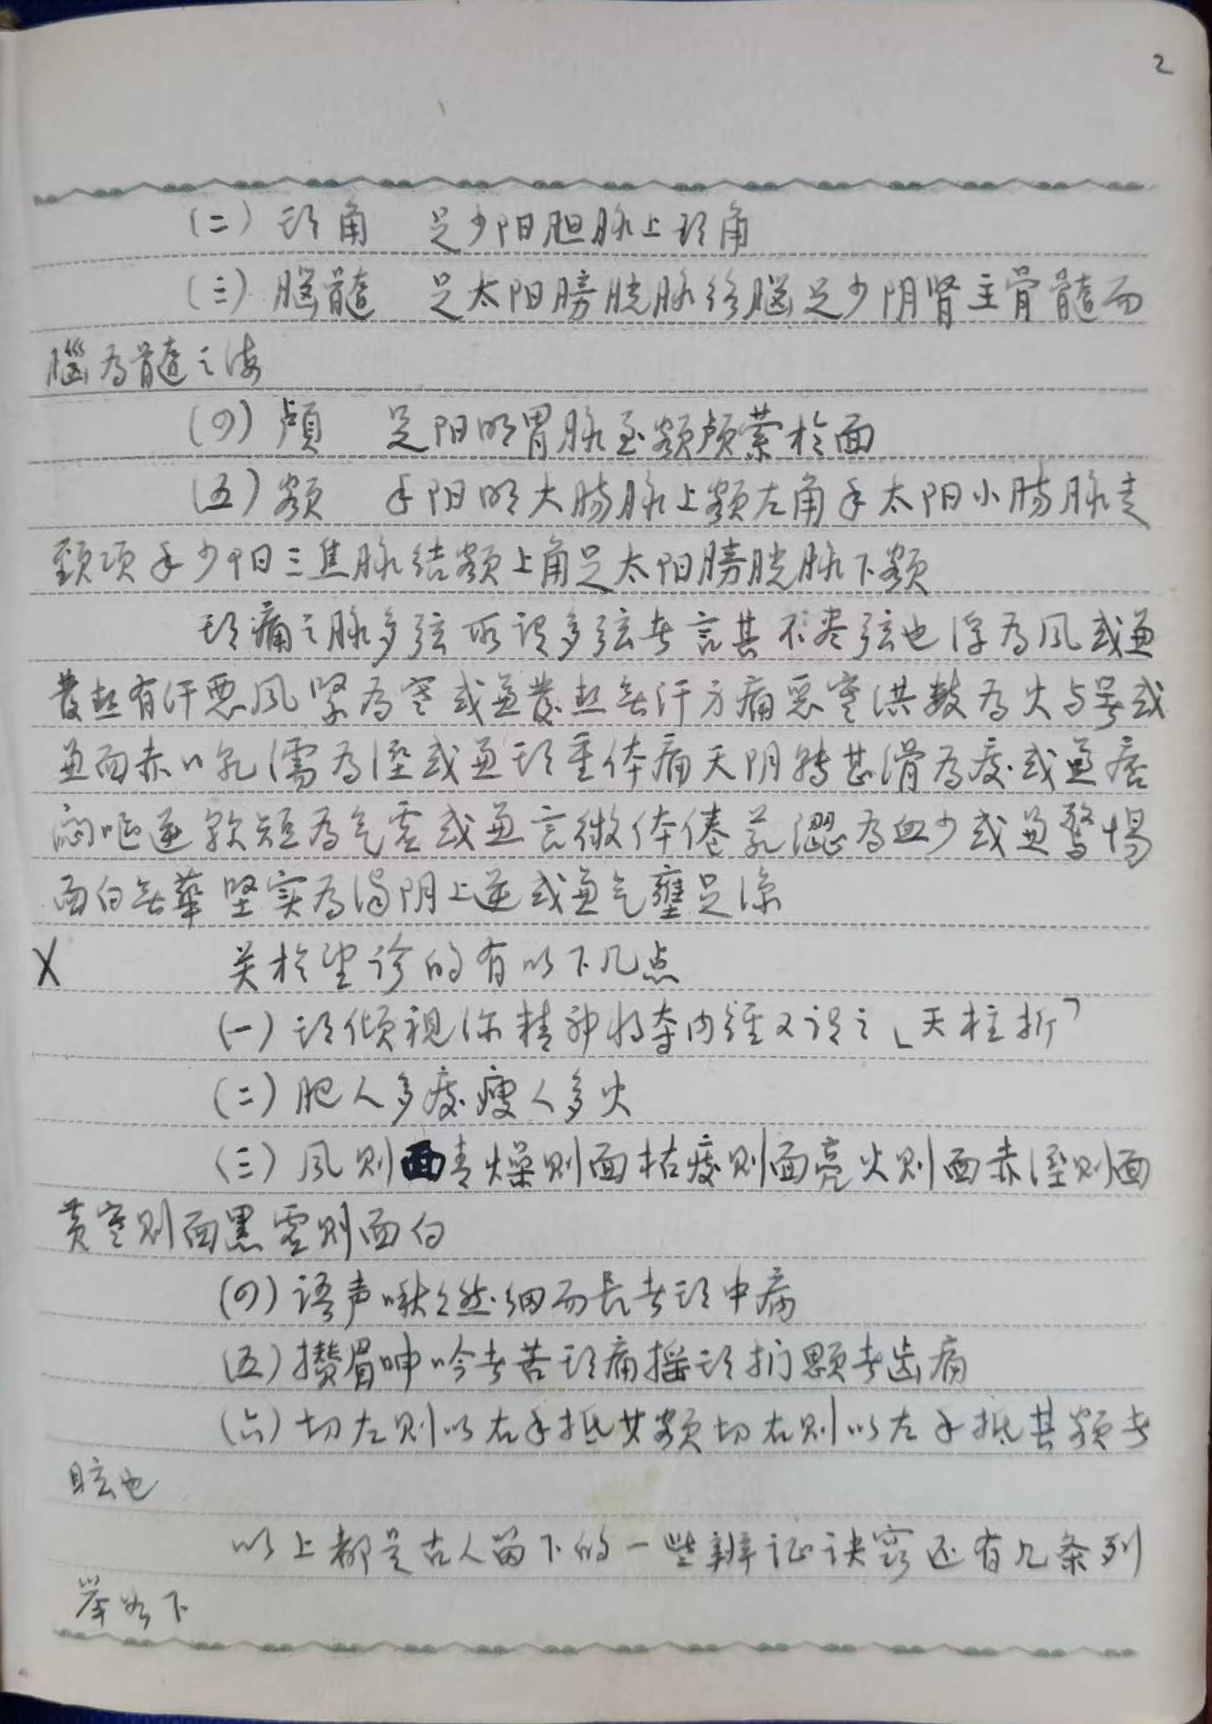 2
(二) 头角 足少阳胆脉上头角
(三) 脑髓 足太阳膀胱脉络脑足少阴肾主骨髓而
腦为髓之海
(四) 颅 足阳明胃脉至额颅萦於面
(五) 额 手阳明大肠脉上额左角手太阳小肠脉走
颈项手少阳三焦脉结额上角足太阳膀胱脉下额
头痛之脉多弦所谓多弦者言其不尽弦也浮为风或兼
发热有汗恶风紧为寒或兼发热无汗方痛恶寒洪数为火与暑或
兼面赤口乾濡为湿或兼头重体痛天阴转甚滑为痰或兼痞
闷呕逆软短为气虚或兼言微体倦芤涩为血少或兼驚惕
面白无華坚实为浊阴上逆或兼气壅足凉
X 关於望诊的有以下几点
(一) 头倾视深精神将夺内经又谓之「天柱折」
(二) 肥人多痰瘦人多火
(三) 风则面青燥则面枯痰则面亮火则面赤湿则面
黄寒则面黑虚则面白
(四) 语声啾々然细而長者头中病
(五) 攒眉呻吟者苦头痛摇头扪颐者齿痛
(六) 切左则以右手抵其额切右则以左手抵其额者
眩也
以上都是古人留下的一些辨证诀窍还有几条列
举如下